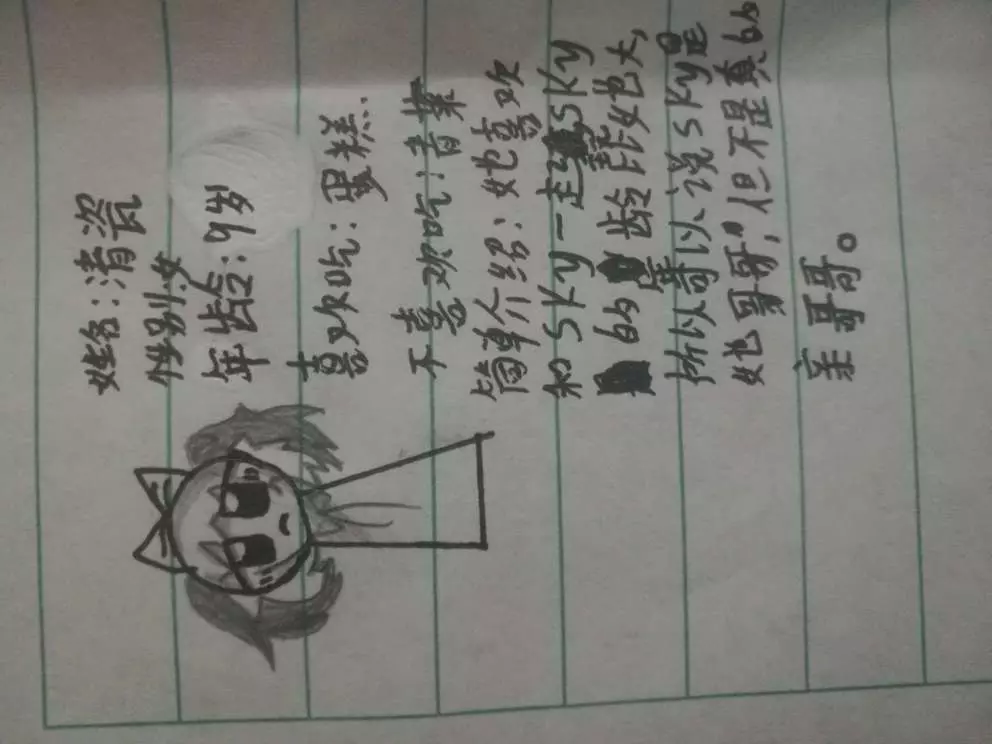 姓名:清瓷
性别:女
年龄:9岁
喜欢吃:蛋糕.
不喜欢吃:青菜
简单介绍:她喜欢
和SKY一走SKY
的年龄比她大,
所以可以说SKY是
她"哥哥",但不是真的
亲哥哥。